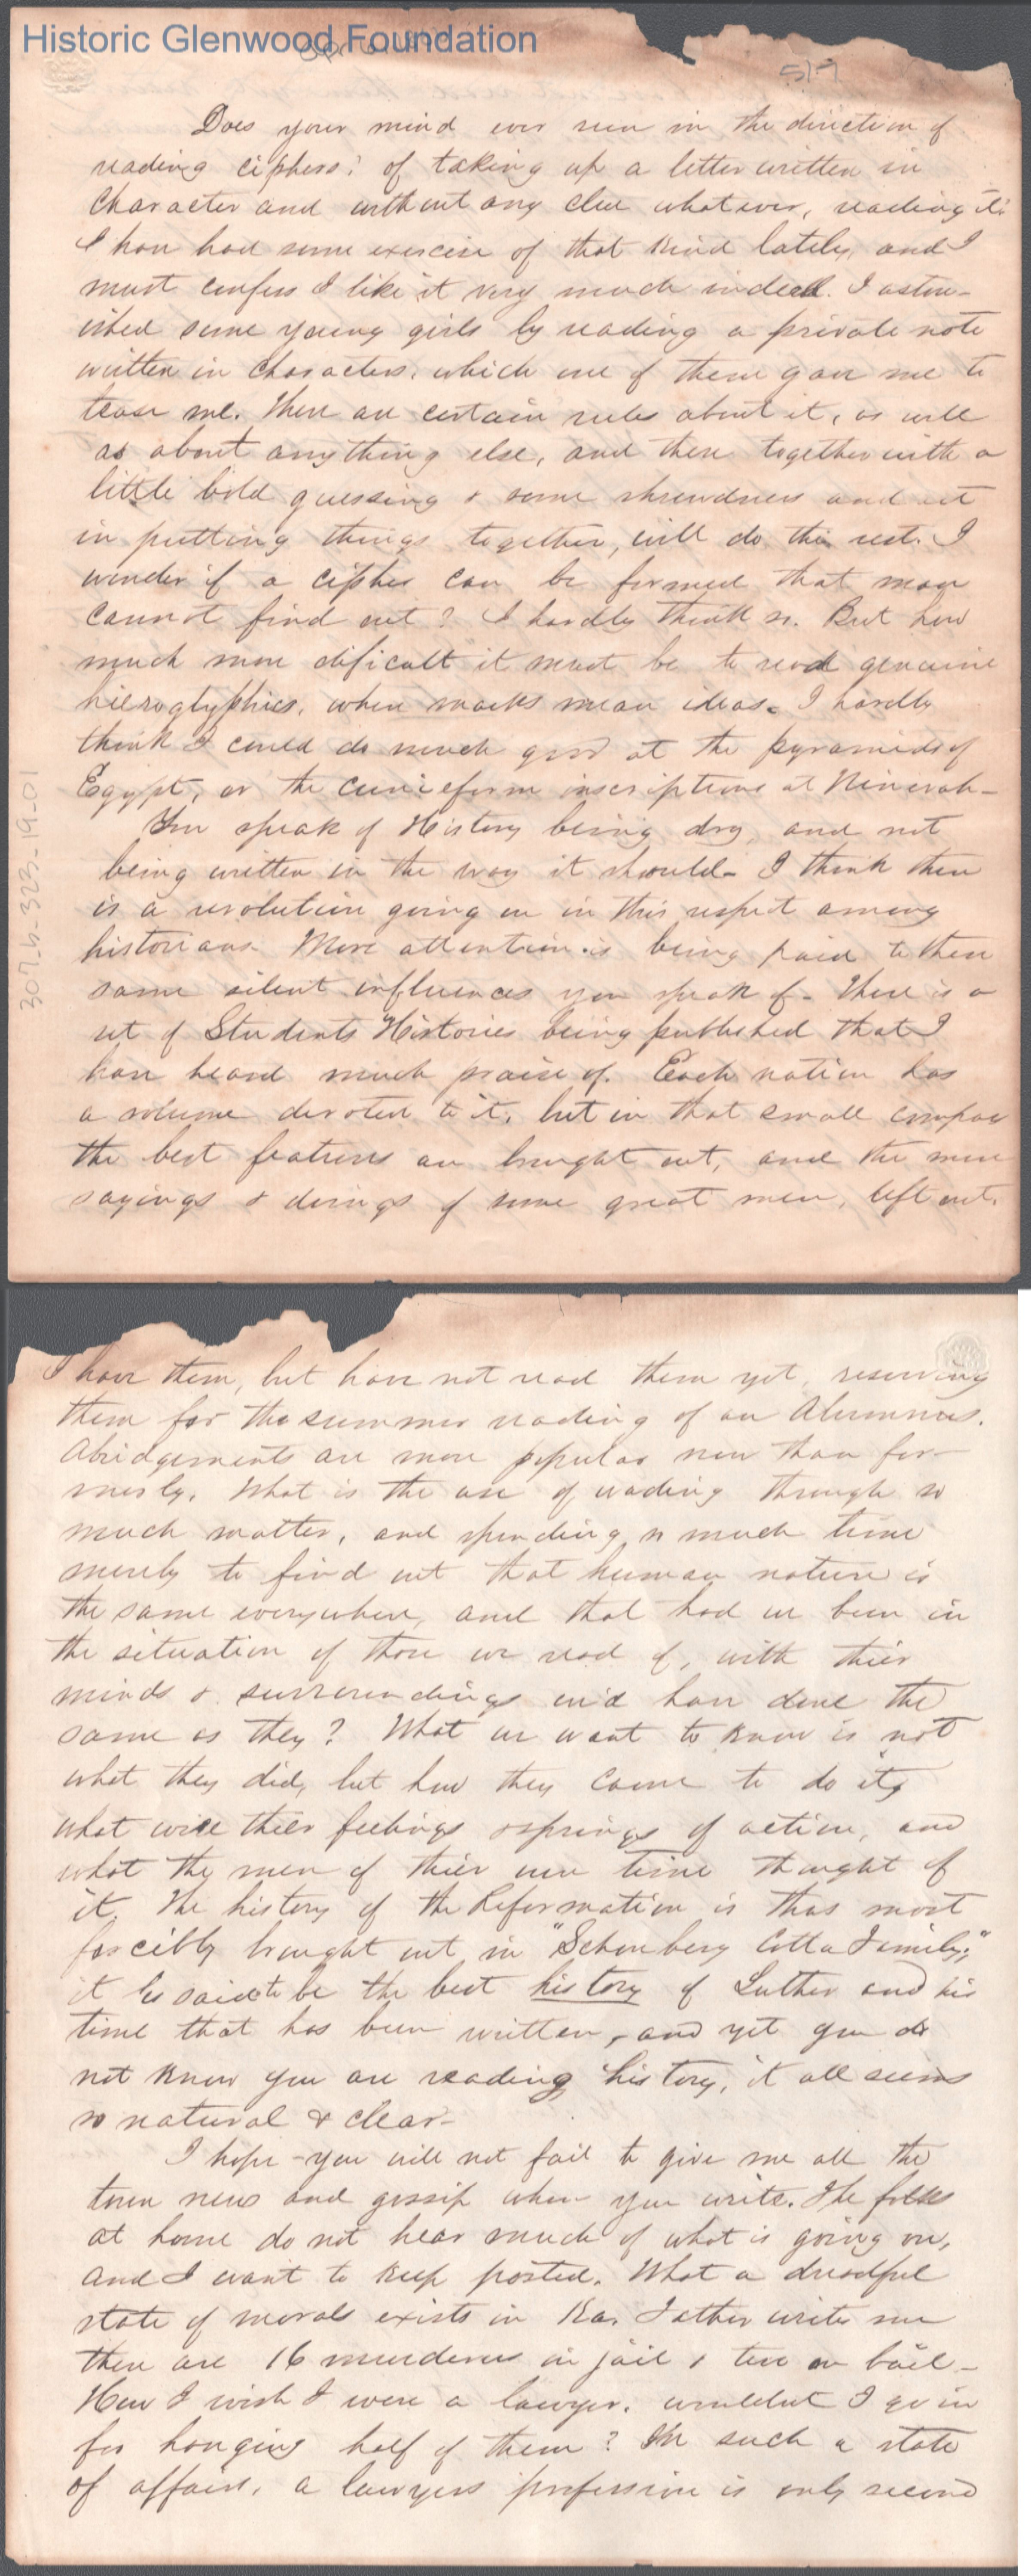 Historic Glenwood Foundation
517
Does your mind ever run in the direction of
reading ciphers? of taking up a letter written in
character and without any clue whatever, reading it?
I have had some exercise of that kind lately, and I
must confess I like it very much indeed. I aston-
ished some young girls by reading a private note
written in characters, which one of them gave me to
tease me. There are certain rules about it, as well
as about anything else, and these together with a
little bold guessing & some shrewdness and art
in putting things together, will do the rest. I
wonder if a cipher can be formed that man
cannot find out? I hardly think so. But how
much more dificult it must be to read genuine
hieroglyphics, when marks mean ideas. I hardly
think I could do much good at the pyramids of
Egypt, or the cuneiform inscriptions at Ninevah-
You speak of History being dry, and not
being written in the way it should- I think there
is a revolution going on in this respect among
historians- More attention is being paid to these
same silent influences you speak of- There is a
set of Students Histories being published that I
have heard much praise of. Each nation has
a volume devoted to it, but in that small compass
the best features are brought out, and the mere
sayings & doings of some great men, left out.
307-b-323-19-01
I have them, but have not read them yet, reserving
them for the summer reading of an Alumnus.
Abridgements are more popular now than for-
merly. What is the use of wading through so
much matter, and spending so much time
merely to find out that human nature is
the same everywhere, and that had we been in
the situation of those we read of, with thier
minds & surroundings we'd have done the
same as they? What we want to know is not
what they did, but how they came to do it,
what were thier feelings & springs of action, and
what the men of thier own time thought of
it. The history of the Reformation is thus most
forcibly brought out in "Schonberg Cotta Family;"
it is said to be the best history of Luther and his
time that has been written, and yet you do
not know you are reading history, it all seems
so natural & clear-
I hope you will not fail to give me all the
town news and gossip when you write. The folks
at home do not hear much of what is going on,
and I want to keep posted. What a dreadful
state of morals exists in Ka. Father writes me
there are 16 murderers in jail & ten on bail-
How I wish I were a lawyer. wouldnt I go in
for hanging half of them? In such a state
of affairs, a lawyers profession is only second